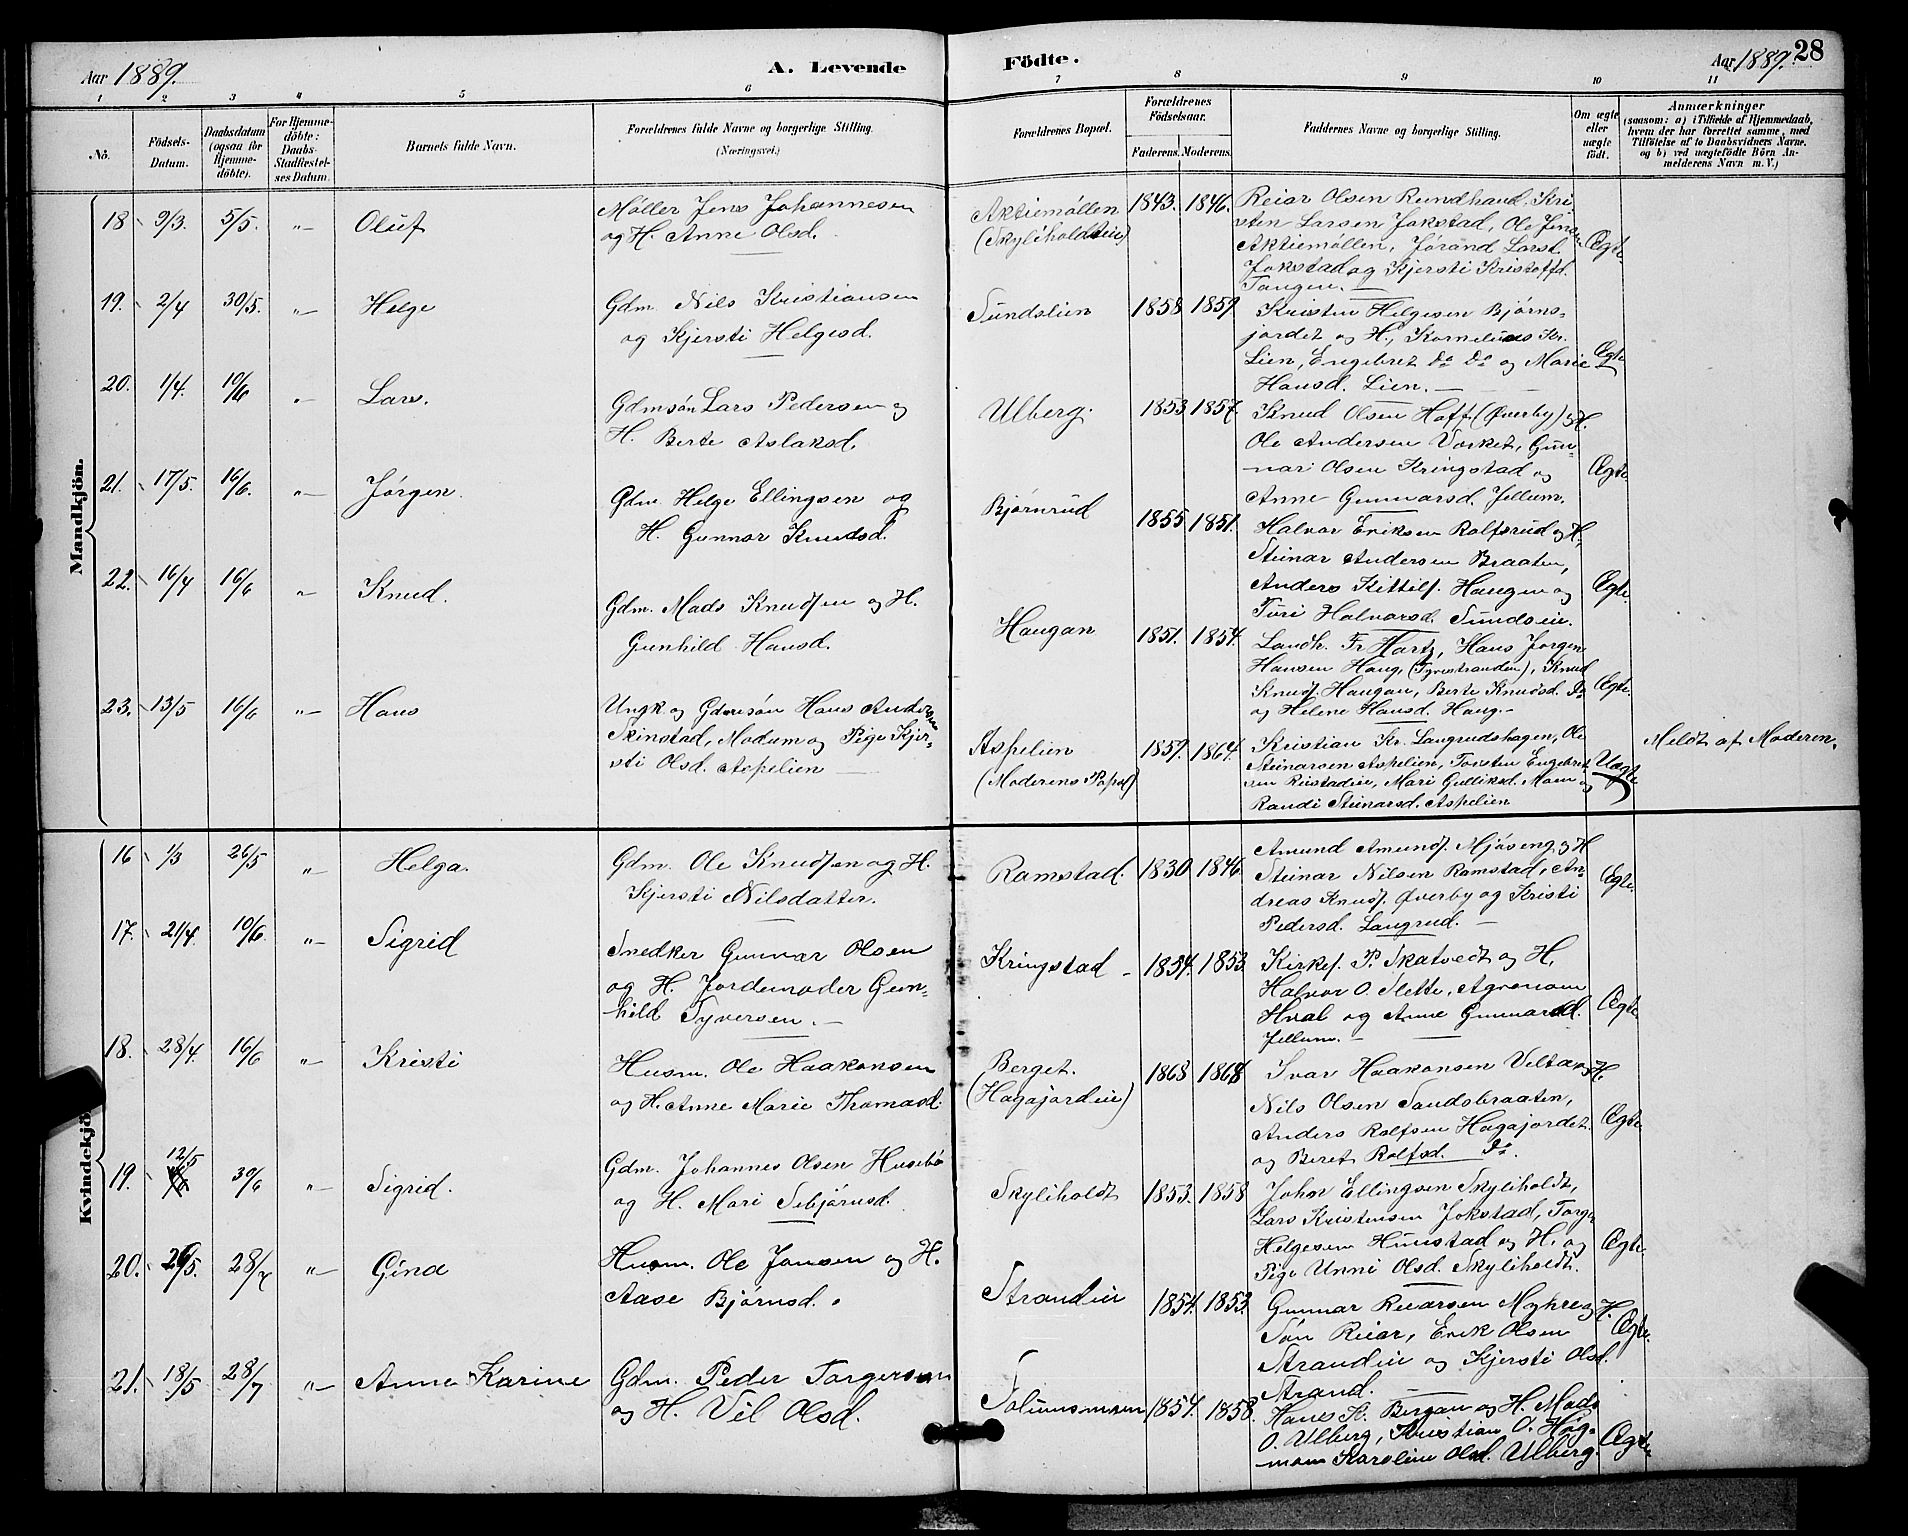 Aar 1889.
A. Levende
Födte.
Aar 1889.
28
1 2 3 4 5 6 7 8 9 10 11
No.
Födsels-
Datum.
Daabsdatum
(ogsaa for
Hjemme-
döbte).
For Hjemme-
döbte:
Daabs-
Stadfæstel-
ses Datum.
Barnets fulde Navn.
Forældrenes fulde Navne og borgerlige Stilling.
(Næringsvei.)
Forældrenes Bopæl.
Forældrenes
Födselsaar.
Faderens. Moderens.
Faddernes Navne og borgerlige Stilling.
Om ægte
eller
uægte
födt.
Anmærkninger
(saasom: a) i Tilfælde af Hjemmedaab,
hvem der har forrettet samme, med
Tilföielse af to Daabsvidners Navne,
og b) ved uægtefödte Börn An-
melderens Navn m. V.)
Mandkjön.
18 9/3. 5/5. " Oluf
Møller Jens Johannesen
og H. Anne Olsd.
Aktiemøllen
(Skyliholdteie)
1843. 1846.
Reiar Olsen Rundhaud, Kri-
sten Larsen Jokstad, Ole Jensen
Aktiemøllen, Jørand Larsd.
Jokstad og Kjersti Kristoffd.
Tangen.
Ægte
19. 2/4 30/5. " Helge
Gdm. Nils Kristiansen
og Kjersti Helgesd.
Sundslien
1858 1859
Kristen Helgesen Bjørns-
jordet og H., Kornelius Kr.
Lien, Engebret do do og Marie
Hansd. Lien.
Ægte
20. 1/4. 10/6 " Lars.
Gdmsøn Lars Pedersen og
H. Berte Aslaksd.
Ulberg.
1853 1857.
Knud Olsen Hoff (Øverby) og H.
Ole Andersen Værket, Gun-
nar Olsen Kringstad og
Anne Gunnarsd. Jellum.
Ægte
21. 17/5. 16/6. " Jørgen.
Gdm. Helge Ellingsen og
H. Gunnor Knudsd.
Bjørnrud
1855 1851.
Halvor Eriksen Rolfsrud og H.
Steinar Andersen Braaten,
Anders Kittils. Haugen og
Turi Halvorsd. Sundseie.
Ægte.
22. 16/4 16/6 " Knud.
Gdm. Mads Knudsen og H.
Gunhild Hansd.
Haugan
1851. 1854.
Landh. Fr Hartz, Hans Jørgen
Hansen Haug, (Tyristranden), Knud
Knuds. Haugan, Berte Knudsd. do
og Helene Hansd. Haug.
Ægte.
23. 13/5 16/6 " Hans
Ungk og Gdmsøn Hans Andersen
Skinstad, Modum og Pige Kjer-
sti Olsd. Aspelien
Aspelien
(Moderens Bopæl)
1859. 1864.
Kristian Kr. Langrudshagen, Ole
Steinarsen Aspelien, Torsten Engebret-
sen Ruistadeie, Mari Gulliksd. Moen og
Randi Steinarsd. Aspelien
Uægte
Meldt af Moderen.
Kvindekjö
16 1/3 26/5 " Helga.
Gdm. Ole Knudsen og H.
Kjersti Nilsdatter.
Ramstad.
1830 1846.
Amund Amunds. Mjøseng og H
Steinar Nilsen Ramstad, An-
dreas Knuds. Øverby og Kristi
Pedersd. Langrud.
Ægte.
17. 21/4. 10/6. " Sigrid
Snedker Gunnar Olsen
og H. Jordemoder Gun-
hild Syversen.
Kringstad
1854. 1853.
Kirkes. P. Skatvedt og H.
Halvor O. Slette, Agronom
Hval og Anne Gunnarsd.
Jellum.
Ægte
18. 28/4. 16/6 " Kristi
Husm. Ole Haakonsen
og H. Anne Marie Thomasd.
Berget.
(Hagajordeie)
1868 1868
Ivar Haakonsen Velta og H.
Nils Olsen Sandsbraaten,
Anders Rolfsen Hagajordet
og Beret Rolfsd. do.
Ægte
19. 12/5 30/6 " Sigrid.
Gdm. Johannes Olsen Husebø
og H. Mari Sebjørnsd.
Skyliholdt
1853. 1858
John Ellingsen Skyliholdt,
Lars Kristensen Jokstad, Torger
Helgesen Hunstad og H. og
Pige Unni Olsd. Skyliholdt.
Ægte
20. 26/5. 28/7 " Gina
Husm. Ole Jonsen og H.
Aase Bjørnsd.
Strandeie
1854. 1853.
Gunnar Reiarsen Myhre og H.
Søn Reiar, Erik Olsen
Strandeie og Kjersti Olsd.
Strand.
Ægte.
21. 18/5 28/7 " Anna Karine
Gdm. Peder Torgersen
og H. Vil Olsd.
Solumsmoen
1854. 1858.
Hans K. Bergan og H. Mads
O. Ulberg, Kristian O. Høg-
moen Karoline Olsd. Ulberg.
Ægte